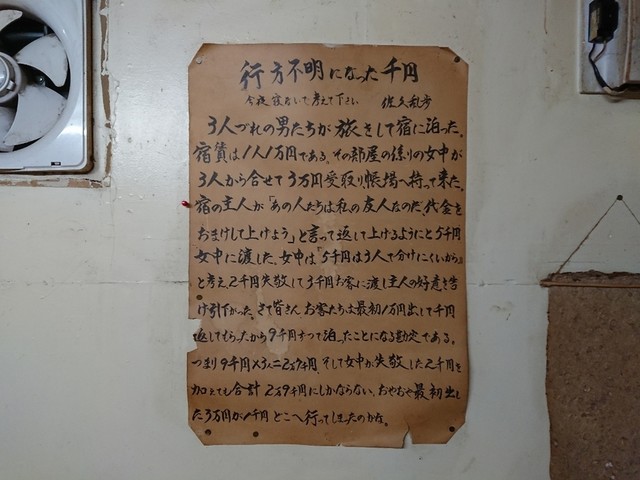 行方不明になった千円
今夜寝ないで考えて下さい 佐久乱歩
3人づれの男たちが旅をして宿に泊った。
宿賃は1人1万円である。その部屋の係りの女中が
3人から合せて3万円受取り帳場へ持って来た。
宿の主人が「あの人たちは私の友人なのだ、代金を
おまけして上げよう」と言って返して上げるようにと5千円
女中に渡した。女中は「5千円は3人で分けにくいから」
と考え2千円失敬して3千円お客に渡し主人の好意を告
げ引下がった。さて皆さん お客たちは最初1万円出して千円
返してもらったから9千円ずつで泊ったことになる勘定である。
つまり9千円×3人=2万7千円、そして女中が失敬した2千円を
加えても合計 2万9千円にしかならない、おやおや最初出し
た3万円が1千円どこへ行ってしまったのかな。